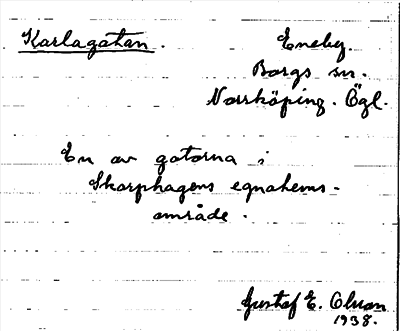 Karlagatan.
Eneby.
Borgs sn.
Norrköping. Ögl.
En av gatorna i
Skarphagens egnahems-
område.
Gustaf E. Olson
1938.